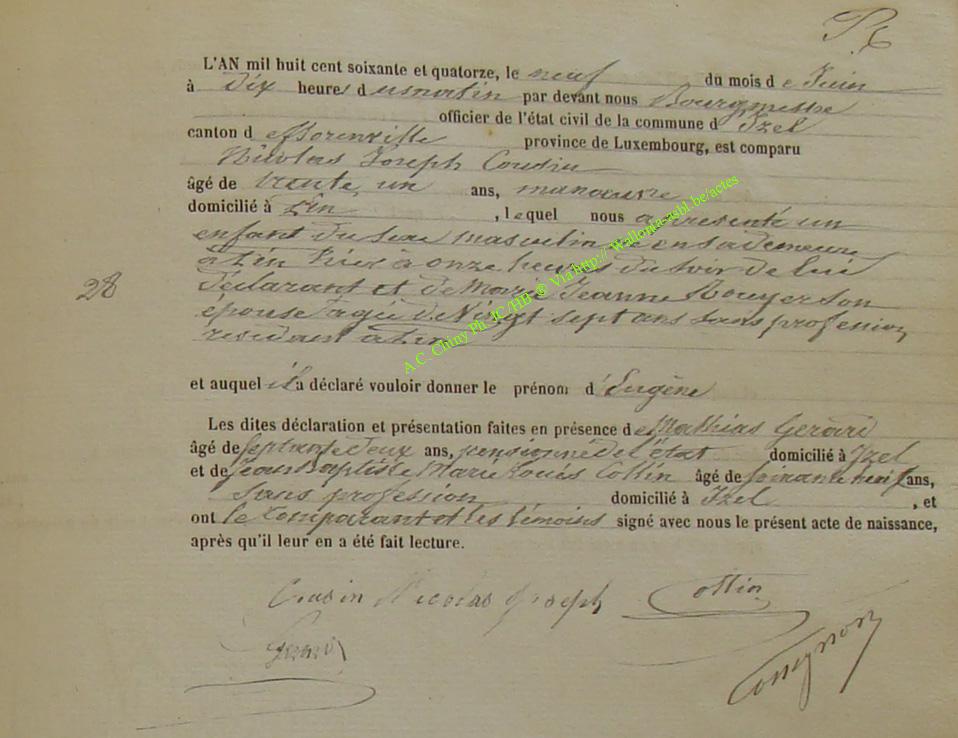 L'AN mil huit cent soixante et quatorze, le neuf du mois d e Juin
à Dix heures d u matin par devant nous Bourgmestre
officier de l'état civil de la commune d' Izel
canton d e florenville province de Luxembourg, est comparu
Nicolas Joseph Cousin
âgé de trente un ans, manœuvre
domicilié à , lequel nous a présenté un
enfant du sexe masculin né en sa demeure
à hier à onze heures du soir de lui
Déclarant et de Marie Jeanne Rouyer son
épouse agée de Vingt sept ans sans profession
résidant à
28
et auquel il a déclaré vouloir donner le prénom d' Eugène
Les dites déclaration et présentation faites en présence d e Mathias Gerard
âgé de septante deux ans, pensionné de l'état domicilié à Izel
et de Jean Baptiste Marie Louis Collin âgé de soixante neuf ans,
sans profession domicilié à Izel , et
ont le comparant et les témoins signé avec nous le présent acte de naissance,
après qu'il leur en a été fait lecture.
Cousin Nicolas Joseph Collin
Gerard
A.C. Chiny Ph JC/HB @ Via http:// Wallonia-asbl.be/actes